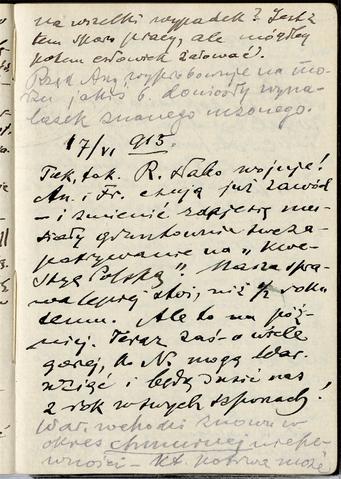 na wszelki wypadek? Jest z
tem sporo pracy, ale mógłby
potem człowiek żałować).
Rząd Ang. wypróbowuje na mo-
rzu jakiś b. doniosły wyna-
lazek znanego uczonego.
17/VI 915.
Tak, tak. R. słabo wojuje!
An. i Fr. czują już zawód
– i zmienić zdaje się mu-
siały gruntownie swe za-
patrywanie na "Kwe-
styę Polską". Nasza spra-
wa lepiej stoi, niż ½ roku
temu. Ale to na póź-
niej. Teraz zaś o wiele
gorzej, bo N. mogą War.
wziąć i będą dusić nas
z rok w swych szponach!
War. wchodzi znowu w
okres chmurnej niepe-
wności – potrwa może